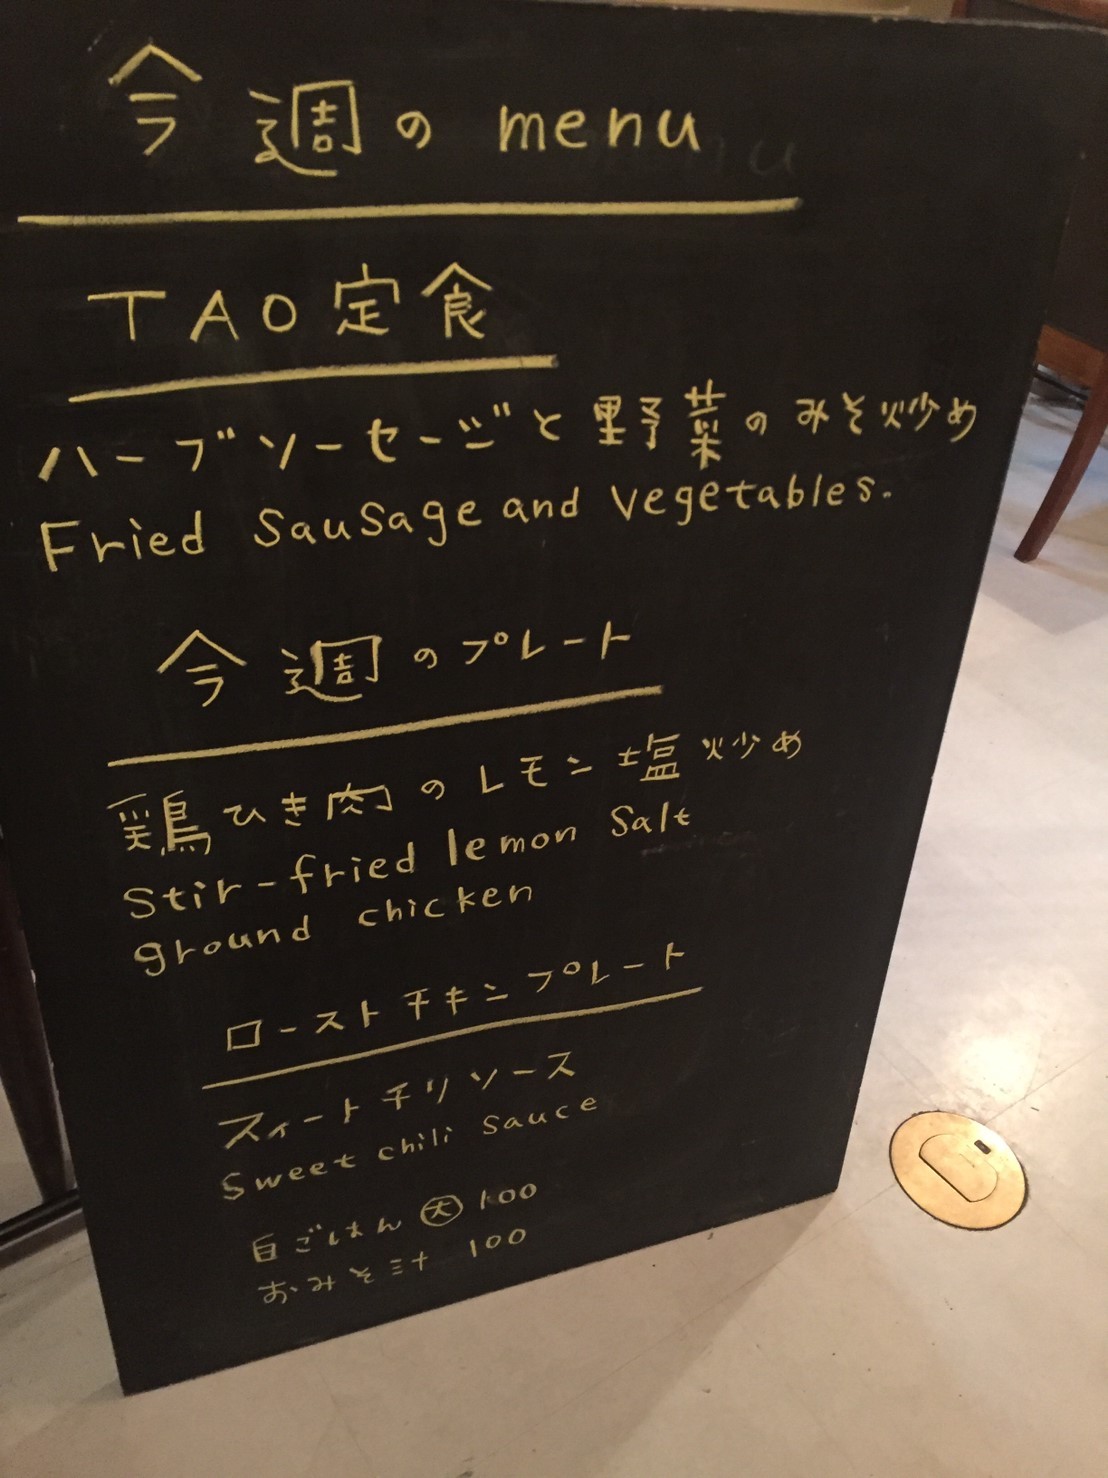 今週のmenu
TAO定食
ハーブソーセージと野菜のみそ炒め
Fried Sausage and vegetables.
今週のプレート
鶏ひき肉のレモン塩炒め
Stir-fried lemon Salt
ground chicken
ローストチキンプレート
スィートチリソース
Sweet chili sauce
白ごはん㊛100
おみそ汁 100